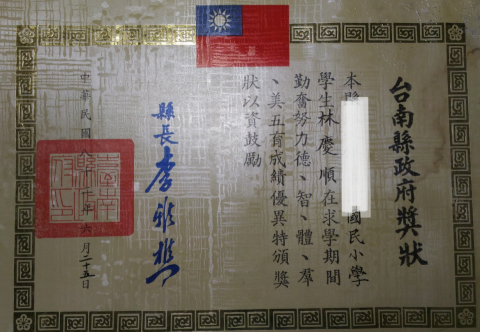 台南縣政府獎狀
本縣國民小學
學生林慶順在求學期間
勤奮努力德、智、體、羣
、美五育成績優異特頒獎
狀以資鼓勵
縣長李雅樵
中華民國年六月二十五日